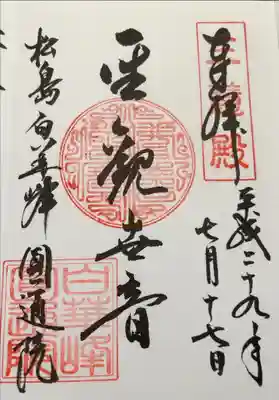 奉拝
平成二十九年
七月十七日
聖観世音
松島白華峰圓通院
白華峰
圓通院